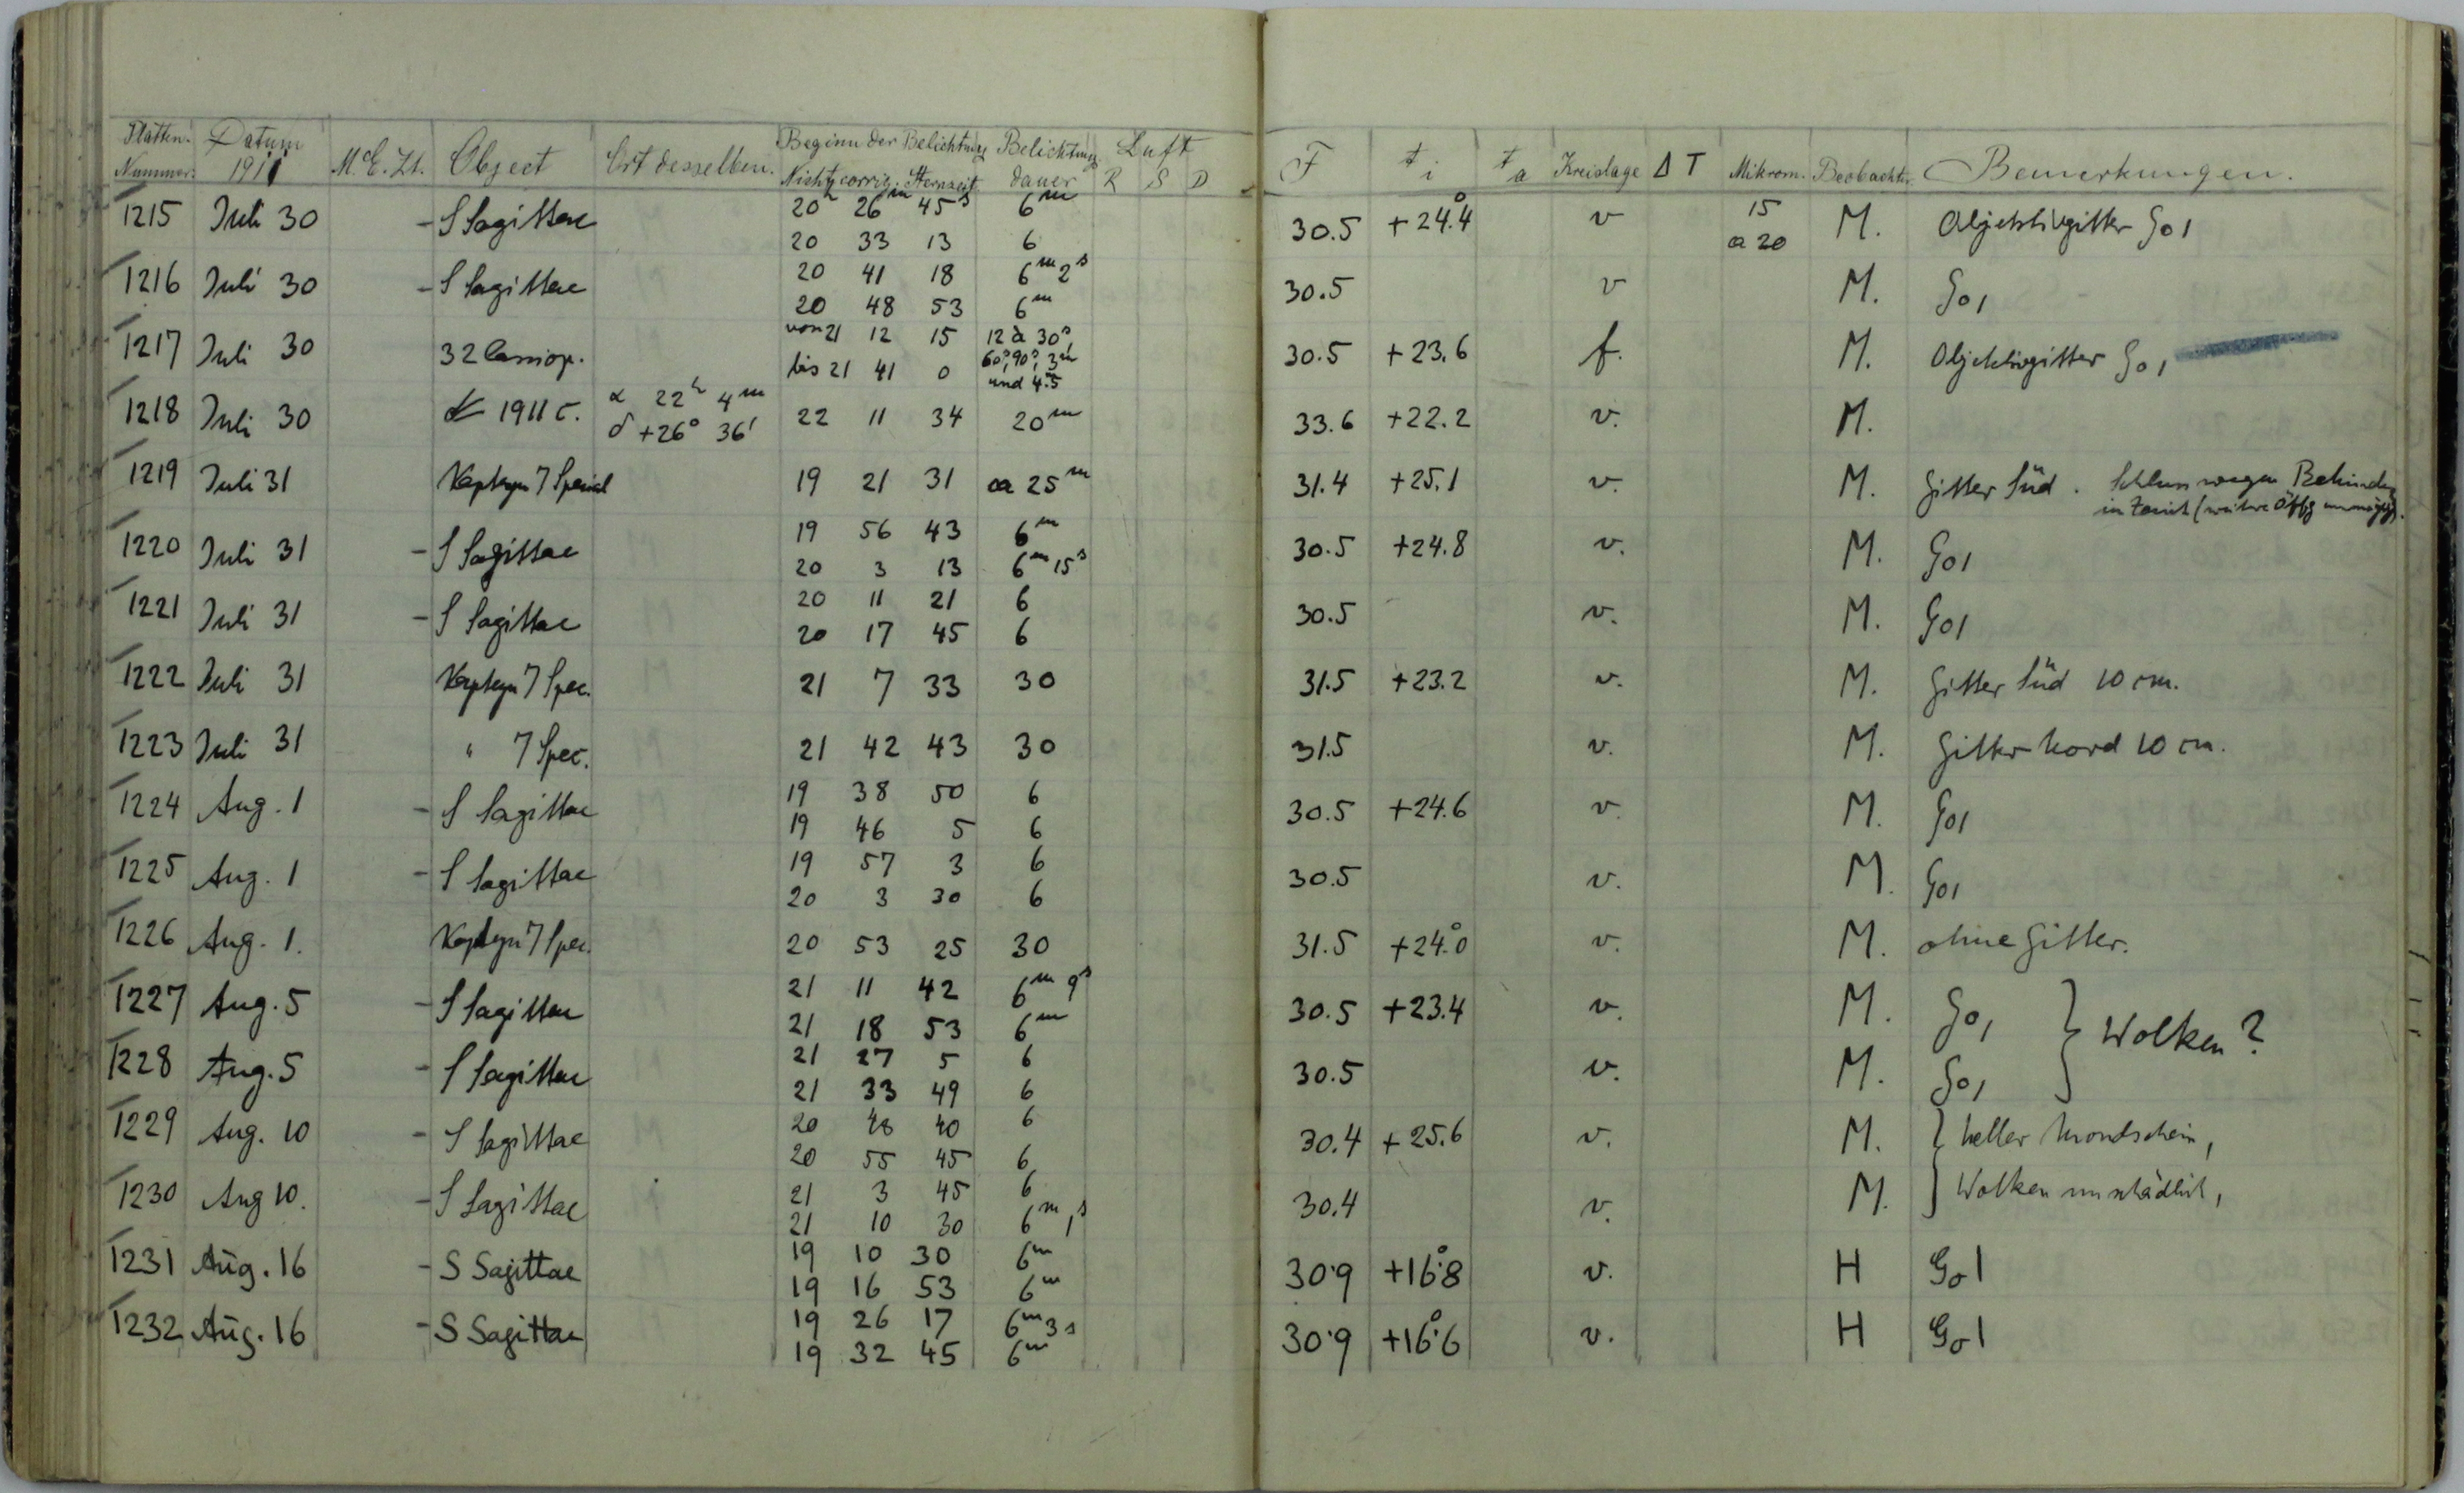 Platten-Nummer. Datum 1911 M.E.Zt. Object Ort desselben. Beginn der Belichtung Nicht corrig. Sternzeit Belichtungsdauer Luft R S D F t i t a Kreislage Δ T Mikrom. Beobachter Bemerkungen.
1215 Juli 30 - S Sagittae 20h 26m 45s 6m 30.5 +24.°4 v 15 M. Objektivgitter Go1
20 33 13 6 a 20
1216 Juli 30 - S Sagittae 20 41 18 6m 2s 30.5 v M. Go1
20 48 53 6m
1217 Juli 30 32 Cassiop. von 21 12 15 12 à 30s 30.5 +23.6 f. M. Objektivgitter Go1
bis 21 41 0 60s, 90s, 3m und 4.m5
1218 Juli 30 1911 c. α 22h 4m 22 11 34 20m 33.6 +22.2 v. M.
δ +26° 36'
1219 Juli 31 Kapteyn 7 Spezial 19 21 31 ca 25m 31.4 +25.1 v. M. Gitter Süd. Schluss wegen
in Zenit
1220 Juli 31 - S Sagittae 19 56 43 6m 30.5 +24.8 v. M. Go1
20 3 13 6m 15s
1221 Juli 31 - S Sagittae 20 11 21 6 30.5 v. M. Go1
20 17 45 6
1222 Juli 31 Kapteyn 7 Spec. 21 7 33 30 31.5 +23.2 v. M. Gitter Süd 10 cm.
1223 Juli 31 " 7 Spec. 21 42 43 30 31.5 v. M. Gitter Nord 10 cm.
1224 Aug. 1 - S Sagittae 19 38 50 6 30.5 +24.6 v. M. Go1
19 46 5 6
1225 Aug. 1 - S Sagittae 19 57 3 6 30.5 v. M. Go1
20 3 30 6
1226 Aug. 1. Kapteyn 7 Spec. 20 53 25 30 31.5 +24.°0 v. M. ohne Gitter.
1227 Aug. 5 - S Sagittae 21 11 42 6m 9s 30.5 +23.4 v. M. Go1 } Wolken?
21 18 53 6m
1228 Aug. 5 - S Sagittae 21 27 5 6 30.5 v. M. Go1
21 33 49 6
1229 Aug. 10 - S Sagittae 20 48 40 6 30.4 +25.6 v. M. } heller Mondschein,
20 55 45 6
1230 Aug 10. - S Sagittae 21 3 45 6 30.4 v. M. } Wolken unschädlich,
21 10 30 6m 1s
1231 Aug. 16 - S Sagittae 19 10 30 6m 30.9 +16.°8 v. H Go1
19 16 53 6m
1232 Aug. 16 - S Sagittae 19 26 17 6m 3s 30.9 +16.°6 v. H Go1
19 32 45 6m